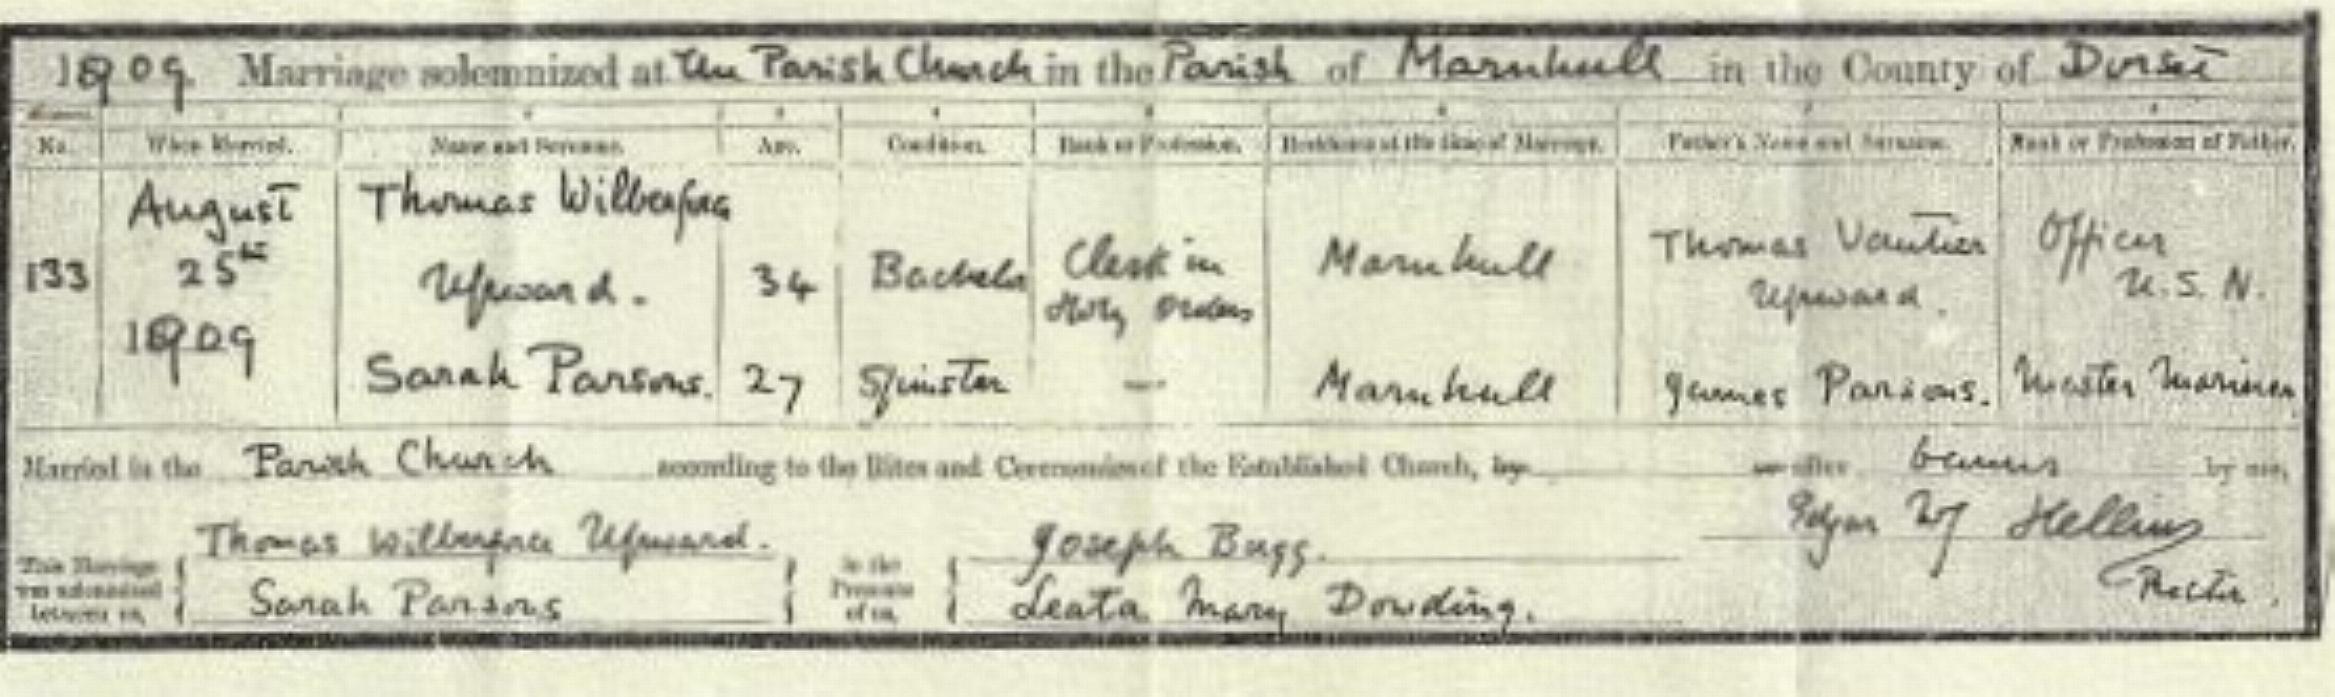 1909 Marriage solemnized at the Parish Church in the Parish of Marnhull in the County of Dorset
No. When Married. Name and Surname. Age. Condition. Rank or Profession. Residence at the time of Marriage. Father's Name and Surname. Rank or Profession of Father.
133 August 25th 1909 Thomas Wilberforce Upward. 34 Bachelor Clerk in Holy Orders Marnhull Thomas Vautier Upward. Officer U.S.N.
Sarah Parsons. 27 Spinster — Marnhull James Parsons. Master Mariner
Married in the Parish Church according to the Rites and Ceremonies of the Established Church, by or after banns by me,
Edgar W Hellins
Rector.
This Marriage was solemnized between us, Thomas Wilberforce Upward. Sarah Parsons
In the Presence of us, Joseph Bugg. Leata Mary Dowding.